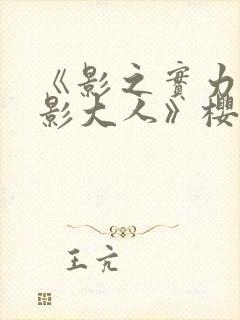 《影之實力
影大人》櫻
王亢